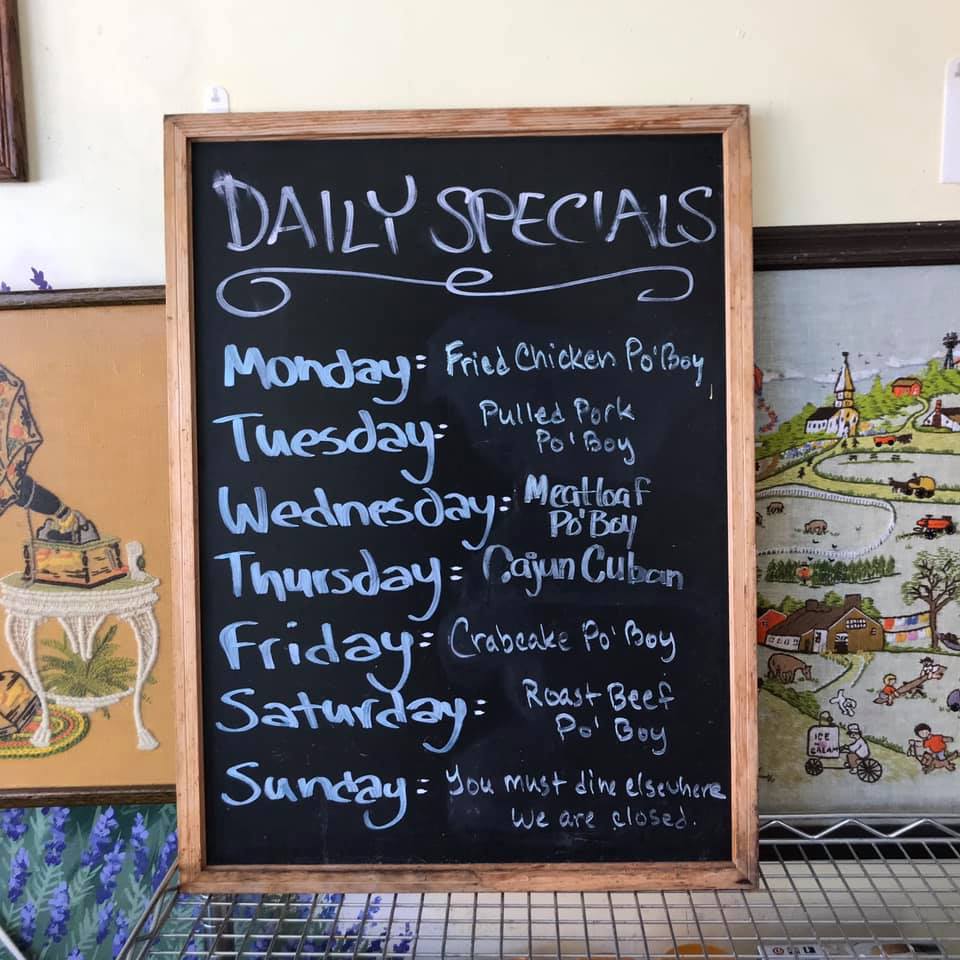 DAILY SPECIALS
Monday: Fried Chicken Po'Boy
Tuesday: Pulled Pork
Po'Boy
Wednesday: Meatloaf
Po'Boy
Thursday: Cajun Cuban
Friday: Crabcake Po'Boy
Saturday: Roast Beef
Po'Boy
Sunday: You must dine elsewhere
We are closed.
ICE
CREAM